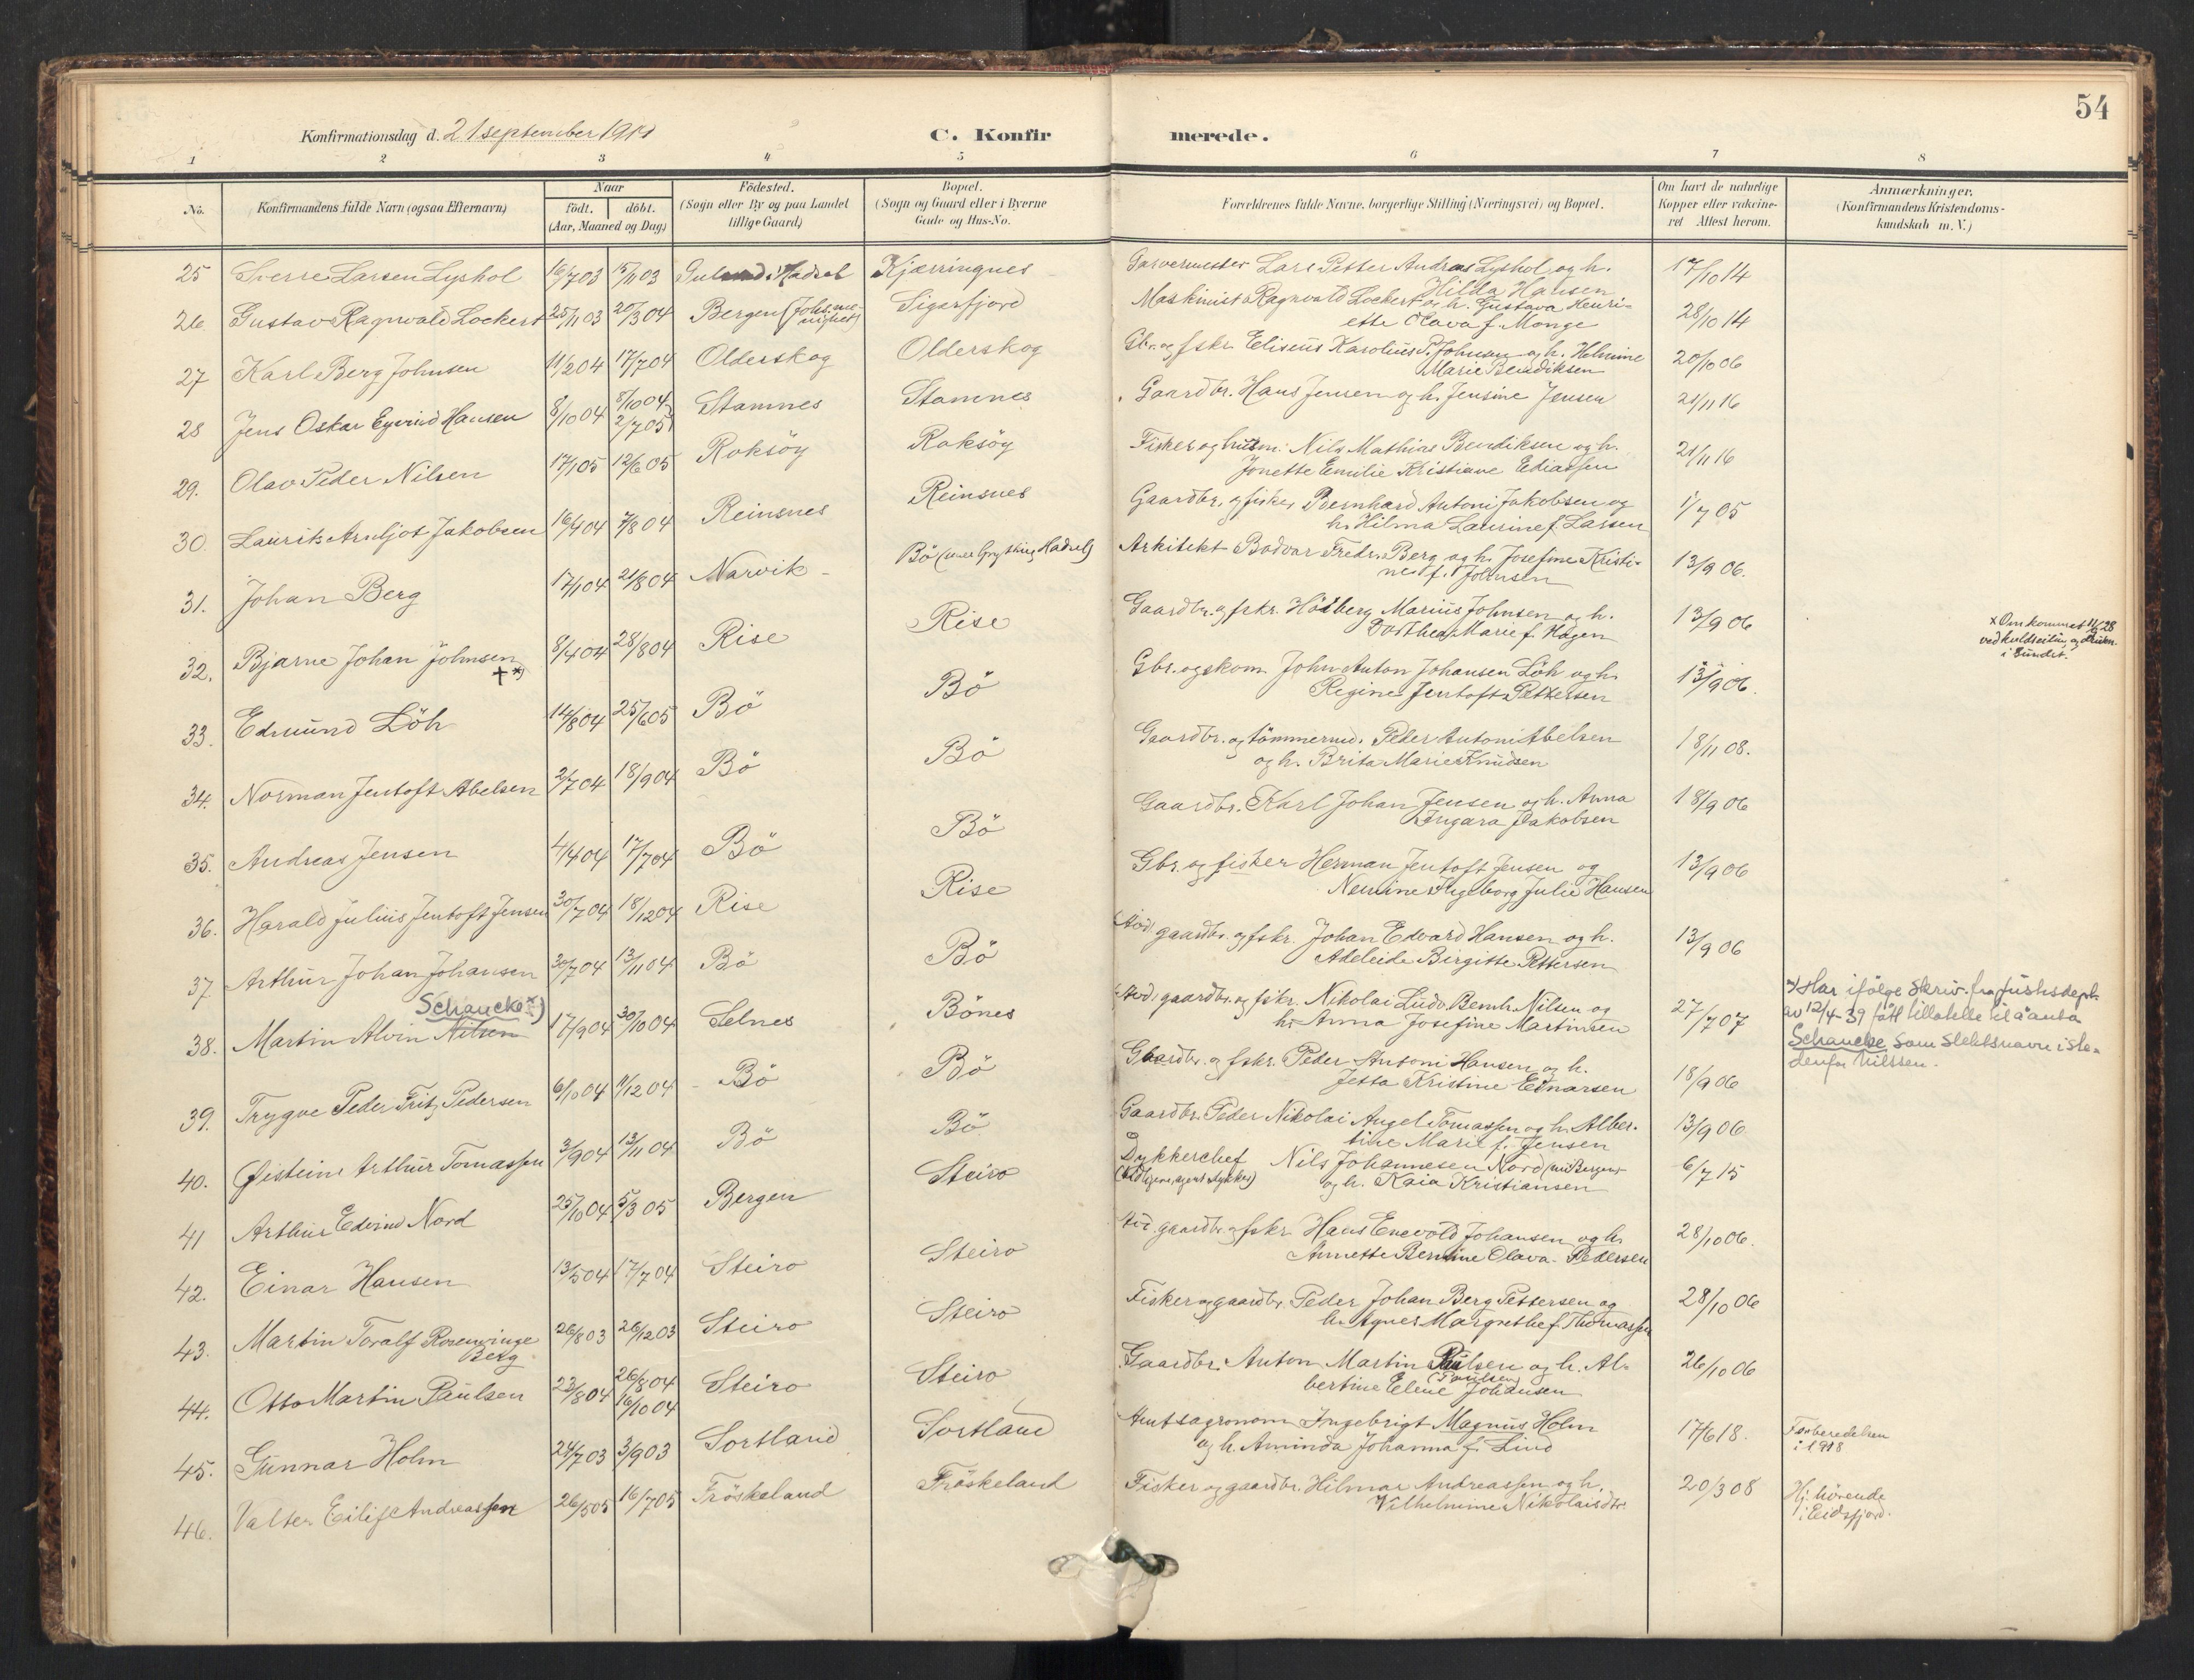 54
Konfirmationsdag d. 21 september 19
C. Konfirmerede.
1 2 3 4 5 6 7 8
No.
Konfirmandens fulde Navn (ogsaa Efternavn)
Naar
födt. döbt.
(Aar, Maaned og Dag)
Födested.
(Sogn eller By og paa Landet
tillige Gaard)
Bopæl.
(Sogn og Gaard eller i Byerne
Gade og Hus-No.
Forældrenes fulde Navne, borgerlige Stilling (Næringsvei) og Bopæl.
Om havt de naturlige
Kopper eller vakcine-
ret Attest herom.
Anmærkninger.
(Konfirmandens Kristendoms-
kundskab m. V.)
25 Sverre Larsen Lyshol 16/7 03 15/11 03 i Hadsel Kjærringnes Garvermester Lars Petter Andreas Lyshol og h. 17/10 14
Hilda Hansen
26 Gustav Ragnvald Lockert 25/11 03 20/3 04 Bergen (Johs.me-
nighet) Sigerfjord Maskinist Ragnvald Lockert og h. Gustava Henri- 28/10 14
ette Olava f. Monge
27 Karl Berg Johnsen 11/2 04 17/7 04 Olderskog Olderskog Gbr. og fskr. Eliseus Karolius P. Johnsen og h. Helmine 20/10 06
Marie Bendiksen
28 Jens Oskar Eyvind Hansen 8/10 04 8/10 04
2/7 05 Stamnes Stamnes Gaardbr. Hans Jensen og h. Jensine Jensen 21/11 16
29. Olav Peder Nilsen 17/1 05 12/6 05 Roksöy Roksöy Fisker og husm. Nils Mathias Bendiksen og h. 21/11 16
Jonette Emilie Kristiane Ediassen
30. Laurits Arnljot Jakobsen 16/4 04 7/8 04 Reinsnes Reinsnes Gaardbr. og fisker Bernhard Antoni Jakobsen og 1/7 05
h. Hilma Laurine f. Larsen
31. Johan Berg 17/1 04 21/8 04 Narvik Bö ( Hadsel) Arkitekt Bodvar Fredr. Berg og h. Josefine Kristi- 13/9 06.
ne f. Johnsen
32. Bjarne Johan Johnsen 8/4 04 28/8 04 Rise Rise Gaardbr. og fskr. Hösberg Marius Johnsen og h. 13/9 06
✝ *) Dorthea Marie f. Hagen
x Omkommet 11/2 28
ved kuldseiling
i Sundet.
33. Edmund Löh 14/8 04 25/6 05 Bö Bö Gbr. og skom. John Anton Johansen Löh og h. 13/9 06.
Regine Jentoft Pettersen
34. Norman Jentoft Abelsen 2/7 04 18/9 04 Bö Bö Gaardbr. og tömmerm. Peder Antoni Abelsen 18/11 08.
og h. Brita Marie Knudsen
35. Andreas Jensen 4/4 04 17/7 04 Bö Bö Gaardbr. Karl Johan Jensen og h. Anna 18/9 06
Ingara Jakobsen
36. Harald Julius Jentoft Jensen 30/7 04 18/12 04 Rise Rise Gbr. og fisker Herman Jentoft Jensen og 13/9 06
Nemine Ingeborg Julie Hansen
37 Arthur Johan Johansen 30/7 04 13/11 04 Bö Bö gaardbr. og fskr. Johan Edvard Hansen og h. 13/9 06
Adeleide Birgitte Pettersen
Schancke *)
38. Martin Alvin Nilsen 17/9 04 30/10 04 Selnes Bönes gaardbr. og fskr. Nikolai Ludv. Bernh. Nilsen og 27/7 07
h. Anna Josefine Martinsen
*) Har ifölge skriv. fra Justisdept.
av 12/4-39 fått tillatelse til å anta
Schancke som slektsnavn i ste-
denfor Nilssen.
39. Trygve Peder Fritz Pedersen 6/10 04 11/12 04 Bö Bö Gaardbr. og fskr. Peder Antoni Hansen og h. 18/9 06
Jetta Kristine Ednarsen
40. Øistein Arthur Tomassen 3/9 04 13/11 04 Bö Bö Gaardbr. Peder Nikolai Angel Tomassen og h. Alber- 13/9 06
tine Marie f. Jensen
41 Arthur Edvind Nord 25/10 04 5/3 05 Bergen Steiro Dykkerchef Nils Johannesen Nord (nu Bergen) 6/7 15
og h. Kaia Kristiansen
42. Einar Hansen 13/5 04 17/7 04 Steiro Steiro gaardbr. og fskr. Hans Enevold Johansen og h. 28/10 06.
Annette Bernine Olava Pedersen
43. Martin Toralf Rosenvinge
Berg 26/8 03 26/12 03 Steiro Steiro Fisker og gaardbr. Peder Johan Berg Pettersen og 28/10 06
h. Agnes Margrethe f. Thomassen
44. Otto Martin Paulsen 23/8 04 26/8 04
16/10 04 Steiro Steiro Gaardbr. Anton Martin Paulsen og h. Al- 26/10 06
(Paulsen)
bertine Elene Johansen
45. Gunnar Holm 24/7 03 3/9 03 Sortland Sortland Amtsagronom Ingebrigt Magnus Holm 17/6 18.
og h. Aminda Johanna f. Lind
Forberedelsen
i 1918
46. Valter Eilif Andreassen 26/5 05 16/7 05 Fröskeland Fröskeland Fisker og gaardbr. Hilmar Andreassen og h. 20/3 08
Vilhelmine Nikolaisdtr.
Hj. hörende
i Eidsfjord.